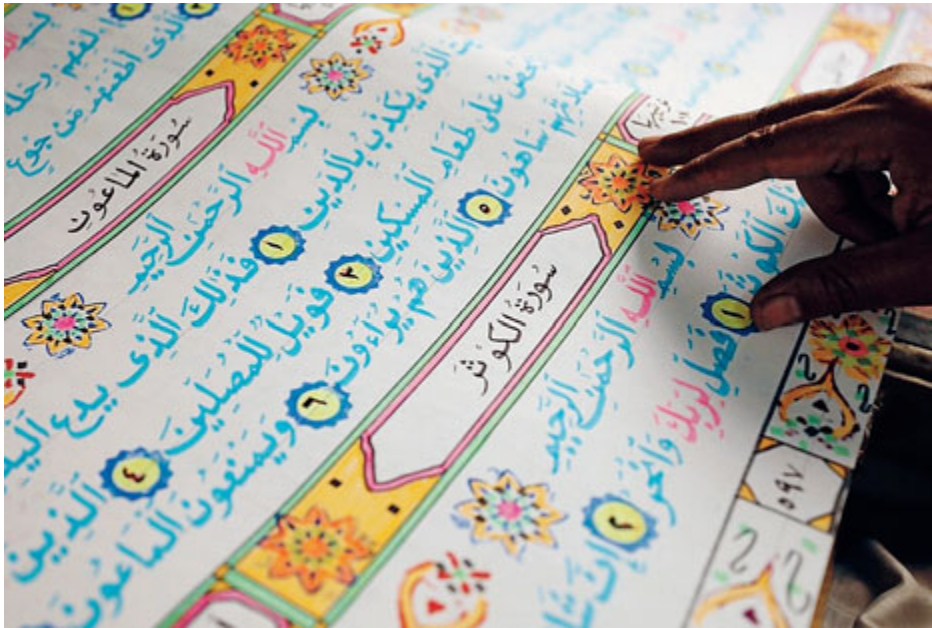 لفهم رحلة
الذي أطعمهم من جوع
سُورَةُ الْمَاعُونِ
بِسْمِ اللَّهِ الرَّحْمَٰنِ الرَّحِيمِ
الَّذِي يُكَذِّبُ بِالدِّينِ ١ فَذَٰلِكَ الَّذِي يَدُعُّ الْيَتِ
ضُّ عَلَىٰ طَعَامِ الْمِسْكِينِ ٣ فَوَيْلٌ لِّلْمُصَلِّينَ ٤ الَّذِينَ
سَاهُونَ ٥ الَّذِينَ هُمْ يُرَاءُونَ ٦ وَيَمْنَعُونَ الْمَاعُونَ
سُورَةُ الْكَوْثَرِ
بِسْمِ اللَّهِ الرَّحْمَٰنِ الرَّحِيمِ
الْكَوْثَرَ ١ فَصَلِّ لِرَبِّكَ وَانْحَرْ ٢ إِنَّ شَا
٥٩٧